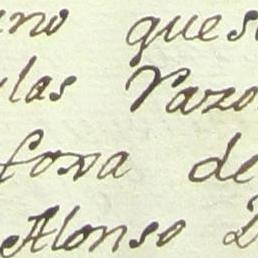 eno ques
las Razo
foxa de
Alonso D